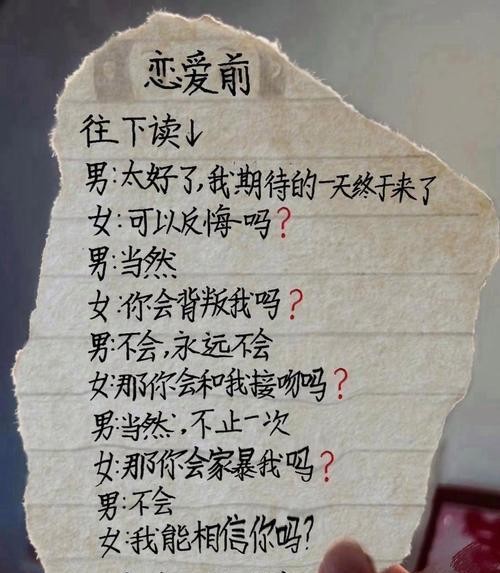 恋爱前
往下读↓
男:太好了,我期待的一天终于来了
女:可以反悔吗?
男:当然
女:你会背叛我吗?
男:不会,永远不会
女:那你会和我接吻吗?
男:当然,不止一次
女:那你会家暴我吗?
男:不会
女:我能相信你吗?